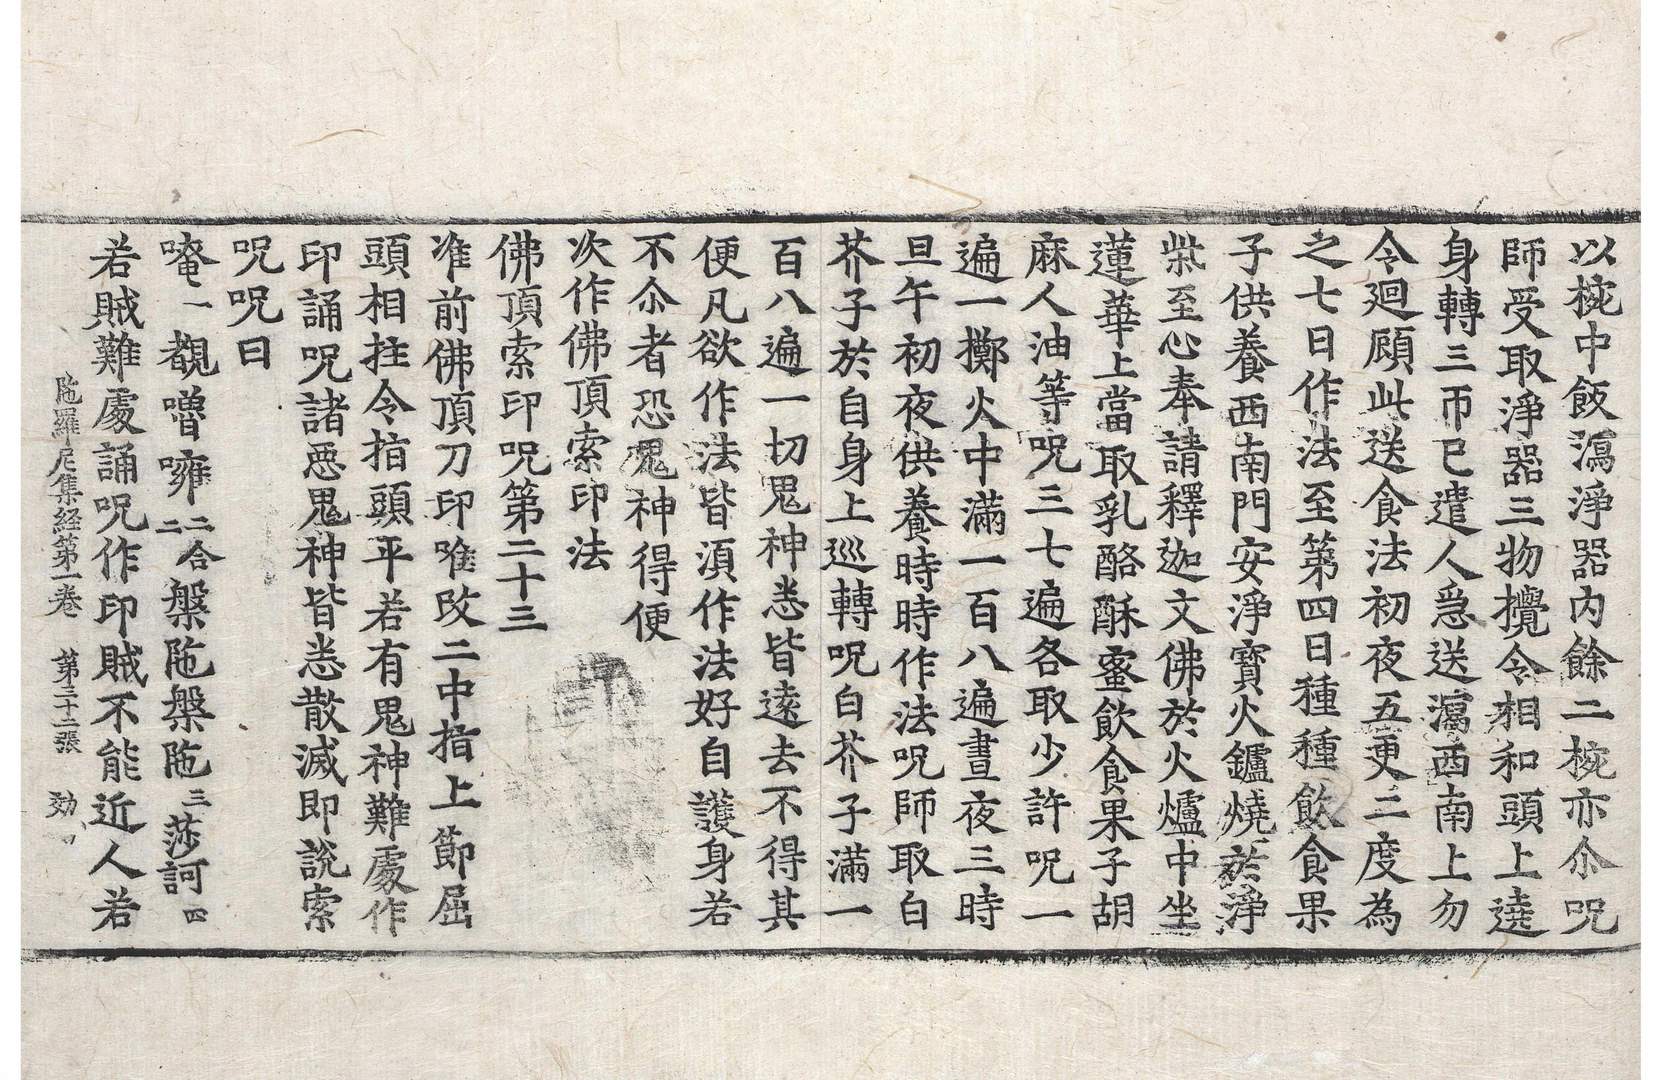 以椀中飯瀉淨器內餘二椀亦尒呪
師受取淨器三物攪令相和頭上遶
身轉三帀已遣人急送瀉西南上勿
令迴顧此送食法初夜五更二度為
之七日作法至第四日種種飲食果
子供養西南門安淨寶火鑪燒於淨
柴至心奉請釋迦文佛於火爐中坐
蓮華上當取乳酪酥蜜飲食果子胡
麻人油等呪三七遍各取少許呪一
遍一擲火中滿一百八遍晝夜三時
旦午初夜供養時時作法呪師取白
芥子於自身上巡轉呪白芥子滿一
百八遍一切鬼神悉皆遠去不得其
便凡欲作法皆湏作法好自護身若
不尒者恐鬼神得便
次作佛頂索印法
佛頂索印呪第二十三
准前佛頂刀印唯改二中指上節屈
頭相拄令指頭平若有鬼神難處作
印誦呪諸惡鬼神皆悉散滅即說索
呪呪曰
唵一覩嚕嗺二合二槃陁槃陁三莎訶四
若賊難處誦呪作印賊不能近人若
陁羅尼集経第一卷 第三十二張 効